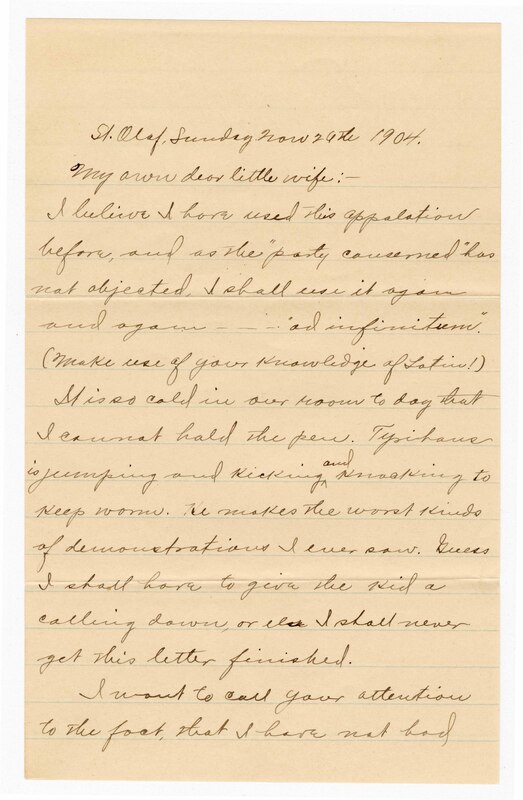 St. Olaf, Sunday Nov 26th 1904.
My own dear little wife:-
I belive I have used this appalation
before, and as the "party concerned" has
not objected, I shall use it again
and again — - .. "ad infinitum".
(Make use of your knowledge of Latin!)
It is so cold in our room to day that
I cannot hold the pen.
is jumping and kicking and knocking to
keep warm. He makes the worst kinds
of demonstrations I ever saw. Guess
I shall have to give the kid a
calling down, or else I shall never
get this letter finished.
I want to call your attention
to the fact, that I have not had